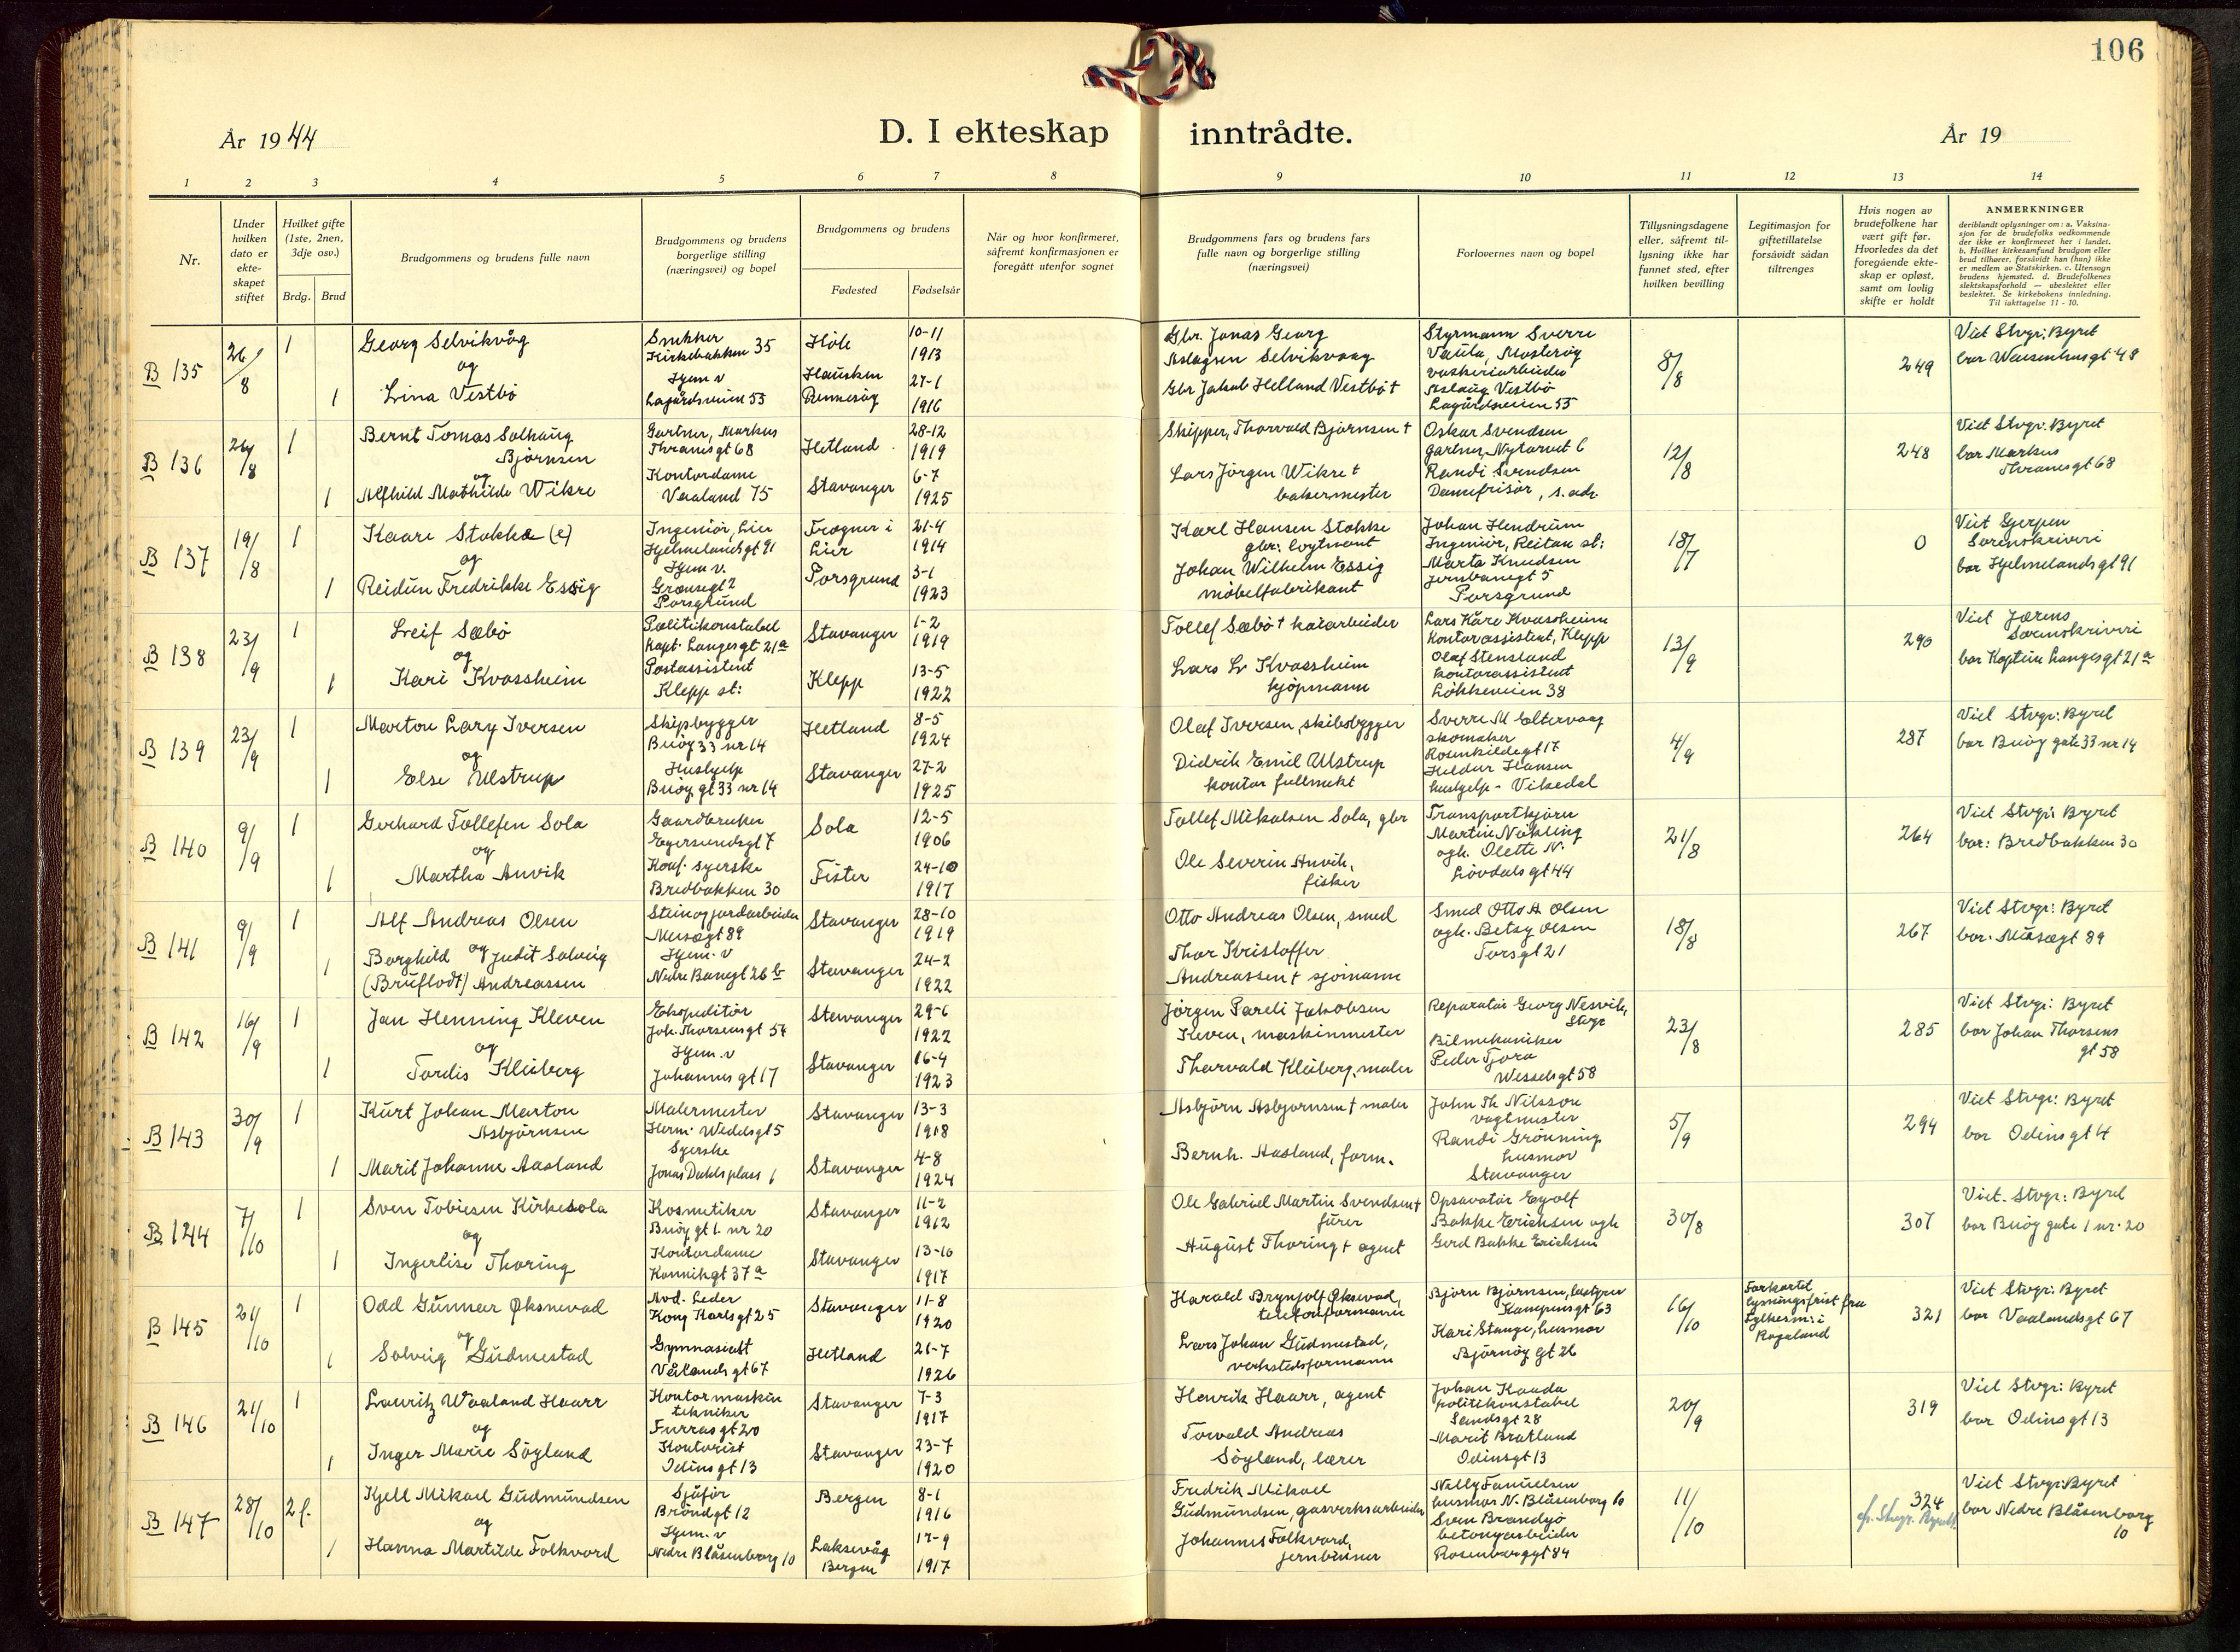 106
År 1944
D. I ekteskap inntrådte.
År 19
1 2 3 4 5 6 7 8 9 10 11 12 13 14
Nr.
Under hvilken dato er ekteskapet stiftet
Hvilket gifte (1ste, 2nen, 3dje osv.)
Brdg. Brud
Brudgommens og brudens fulle navn
Brudgommens og brudens borgerlige stilling (næringsvei) og bopel
Brudgommens og brudens
Fødested
Fødselsår
Når og hvor konfirmeret, såfremt konfirmasjonen er foregått utenfor sognet
Brudgommens fars og brudens fars fulle navn og borgerlige stilling (næringsvei)
Forlovernes navn og bopel
Tillysningsdagene eller, såfremt tillysning ikke har funnet sted, efter hvilken bevilling
Legitimasjon for giftetillatelse forsåvidt sådan tiltrenges
Hvis nogen av brudefolkene har vært gift før. Hvorledes da det foregående ekteskap er opløst, samt om lovlig skifte er holdt
ANMERKNINGER
deriblandt oplysninger om: a. Vaksinasjon for de brudefolks vedkommende der ikke er konfirmeret her i landet. b. Hvilket kirkesamfund brudgom eller brud tilhører, forsåvidt han (hun) ikke er medlem av Statskirken. c. Utensogn brudens hjemsted. d. Brudefolkenes slektskapsforhold — ubeslektet eller beslektet. Se kirkebokens innledning. Til iakttagelse 11 - 10.
B 135
26/8
1
Georg Selvikvåg
og
1
Lina Vestbö
Snekker
Kirkebakken 35
Hjem v
Lagårdsveien 55
Höle
Hausken
Rennesöy
10-11
1913
27-1
1916
Gbr. Jonas Georg
Aslagsen Selvikvaag
Gbr Jakob Helland Vestbö †
Styrmann Sverre
Vaula, Mosteröy
Aslaug Vestbö
Lagårdsveien 55
8/8
249
Viet Stvgr: Byret
bor Waisenhusgt 48
B 136
26/8
1
Bernt Tomas Solhaug
Björnsen
og
1
Alfhild Mathilde Wikre
Gartner, Markus
Thranesgt 68
Kontordame
Vaaland 75
Hetland
Stavanger
28-12
1919
6-7
1925
Skipper, Thorvald Björnsen †
Lars Jörgen Wikre †
bakermester
Oskar Svendsen
gartner, Nytorvet 6
Randi Svendsen
Damefrisör, s. adr.
12/8
248
Viet Stvgr. Byret
bor Markus
Thranesgt 68
B 137
19/8
1
Kaare Stokke (e)
og
1
Reidun Fredrikke Essig
Ingeniör, Lier
Hjelmelandsgt 91
Hjem v.
Grensegt 2
Porsgrund
Frogner i
Lier
Porsgrund
21-4
1914
3-1
1923
Karl Hansen Stokke
Johan Wilhelm Essig
möbelfabrikant
Johan Hendrum
Ingeniör, Reitan st:
Marta Knudsen
Jernbanegt 5
Porsgrund
18/7
0
Viet Gjerpen
Sorenskriveri
bor Hjelmelandsgt 91
B 138
23/9
1
Leif Sæbö
og
1
Kari Kvassheim
Politikonstabel
Kapt. Langesgt 21a
Postassistent
Klepp st:
Stavanger
Klepp
1-2
1919
13-5
1922
Tollef Sæbö † kaiarbeider
Lars Lr Kvassheim
kjöpmann
Lars Kåre Kvassheim
Kontorassistent, Klepp
Olaf Stensland
kontorassistent
Lökkeveien 38
13/9
290
Viet Jærens
Sorenskriveri
bor Kaptein Langesgt 21a
B 139
23/9
1
Marton Lary Iversen
og
1
Else Ulstrup
Skipsbygger
Buöy 33 nr 14
Hushjelp
Buöy gt 33 nr 14
Hetland
Stavanger
8-5
1924
27-2
1925
Olaf Iversen, skibsbygger
Didrik Emil Ulstrup
kontor fullmekt
Sverre M Eltervaag
skomaker
Rosenkildegt 17
Heldur Hansen
hushjelp - Vikedal
4/9
287
Viet Stvgr: Byret
bor Buöy gate 33 nr 14
B 140
9/9
1
Gerhard Tollefsen Sola
og
1
Martha Anvik
Gaardbruker
Egersundsgt 7
Konf. syerske
Bredbakken 30
Sola
Fister
12-5
1906
24-10
1917
Tollef Mikalsen Sola, gbr
Ole Severin Anvik,
fisker
Transportkjörer
Martin Nökling
ogh. Olette N.
Lövdalsgt 44
21/8
264
Viet Stvgr: Byret
bor: Bredbakken 30
B 141
9/9
1
Alf Andreas Olsen
og
1
Borghild Judit Solveig
(Bruflodt) Andreassen
Stein og jordarbeider
Musegt 89
Hjem. v
Nedre Banegt 26 b
Stavanger
Stavanger
28-10
1919
24-2
1922
Otto Andreas Olsen, smed
Thor Kristoffer
Andreassen † sjömann
Smed Otto A Olsen
ogh. Betsy Olsen
Torsgt 21
18/8
267
Viet Stvgr: Byret
bor. Musegt 89
B 142
16/9
1
Jan Henning Kleven
og
1
Tordis Kleiberg
Ekspeditör
Joh. Thorsensgt 54
Hjem. v
Johannesgt 17
Stavanger
Stavanger
29-6
1922
16-4
1923
Jörgen Pareli Jakobsen
Kleven, maskinmester
Thorvald Kleiberg, maler
Reparatör Georg Nesvik,
Stvgr
Bilmekaniker
Peder Tjora
Wesselsgt 58
23/8
285
Viet Stvgr: Byret
bor Johan Thorsens
gt 58
B 143
30/9
1
Kurt Johan Marton
Asbjörnsen
1
Marit Johanne Aasland
Malermester
Herm. Wedelsgt 5
Syerske
Jonas Dahls plass 1
Stavanger
Stavanger
13-3
1918
4-8
1924
Asbjörn Asbjørnsen † maler
Bernh. Aasland, form.
John Th Nilsson
vagtmester
Randi Grönning
husmor
Stavanger
5/9
294
Viet Stvgr: Byret
bor Odinsgt 4
B 144
7/10
1
Sven Tobiesen Kirkesola
og
1
Ingerlise Thoring
Kosmetiker
Buöy gt 1. nr 20
Kontordame
Kannikgt 37a
Stavanger
Stavanger
11-2
1912
13-10
1917
Ole Gabriel Martin Svendsen †
fürer
August Thoring † agent
Opsavatör Eyolf
Bakke Erichsen ogh
Gerd Bakke Erichsen
30/8
307
Viet. Stvgr: Byret
bor Buöy gate 1 nr. 20
B 145
21/10
1
Odd Gunnar Øksnevad
og
1
Solveig Gudmestad
Avd. Leder
Kong Karlsgt 25
Gymnasiast
Vålandsgt 67
Stavanger
Hetland
11-8
1920
21-7
1926
Harald Brynjolf Øksnevad,
telefonformann
Lars Johan Gudmestad,
verkstedsformann
Björn Björnsen, bestyrer
Kampensgt 63
Kari Stange, husmor
Björnöy gt 26
16/10
Forkortet
lysningsfrist fra
Fylkesm: i
Rogaland
321
Viet Stvgr: Byret
bor Vaalandsgt 67
B 146
21/10
1
Lauritz Waaland Haarr
og
1
Inger Marie Söyland
Kontormaskin
tekniker
Furrasgt 20
Kontorist
Odinsgt 13
Stavanger
Stavanger
7-3
1917
23-7
1920
Henrik Haarr, agent
Torvald Andreas
Söyland, lærer
Johan Kauda
politikonstabel
Sandsgt 28
Marit Bratland
Odinsgt 13
20/9
319
Viet Stvgr: Byret
bor Odinsgt 13
B 147
28/10
2 f.
Kjell Mikael Gudmundsen
og
1
Hanna Martilde Folkvord
Sjåför
Bröndgt 12
Hjem. v
Nedre Blåsenborg 10
Bergen
Laksevåg
Bergen
8-1
1916
17-9
1917
Fredrik Mikael
Gudmundsen, gasverksarbeider
Johannes Folkvord,
jernbinner
Nelly Famuelsen
husmor N. Blåsenborg 10
Sven Brandsjö
betongarbeider
Rosenborggt 84
11/10
324
Viet Stvgr: Byret
bor Nedre Blåsenborg
10